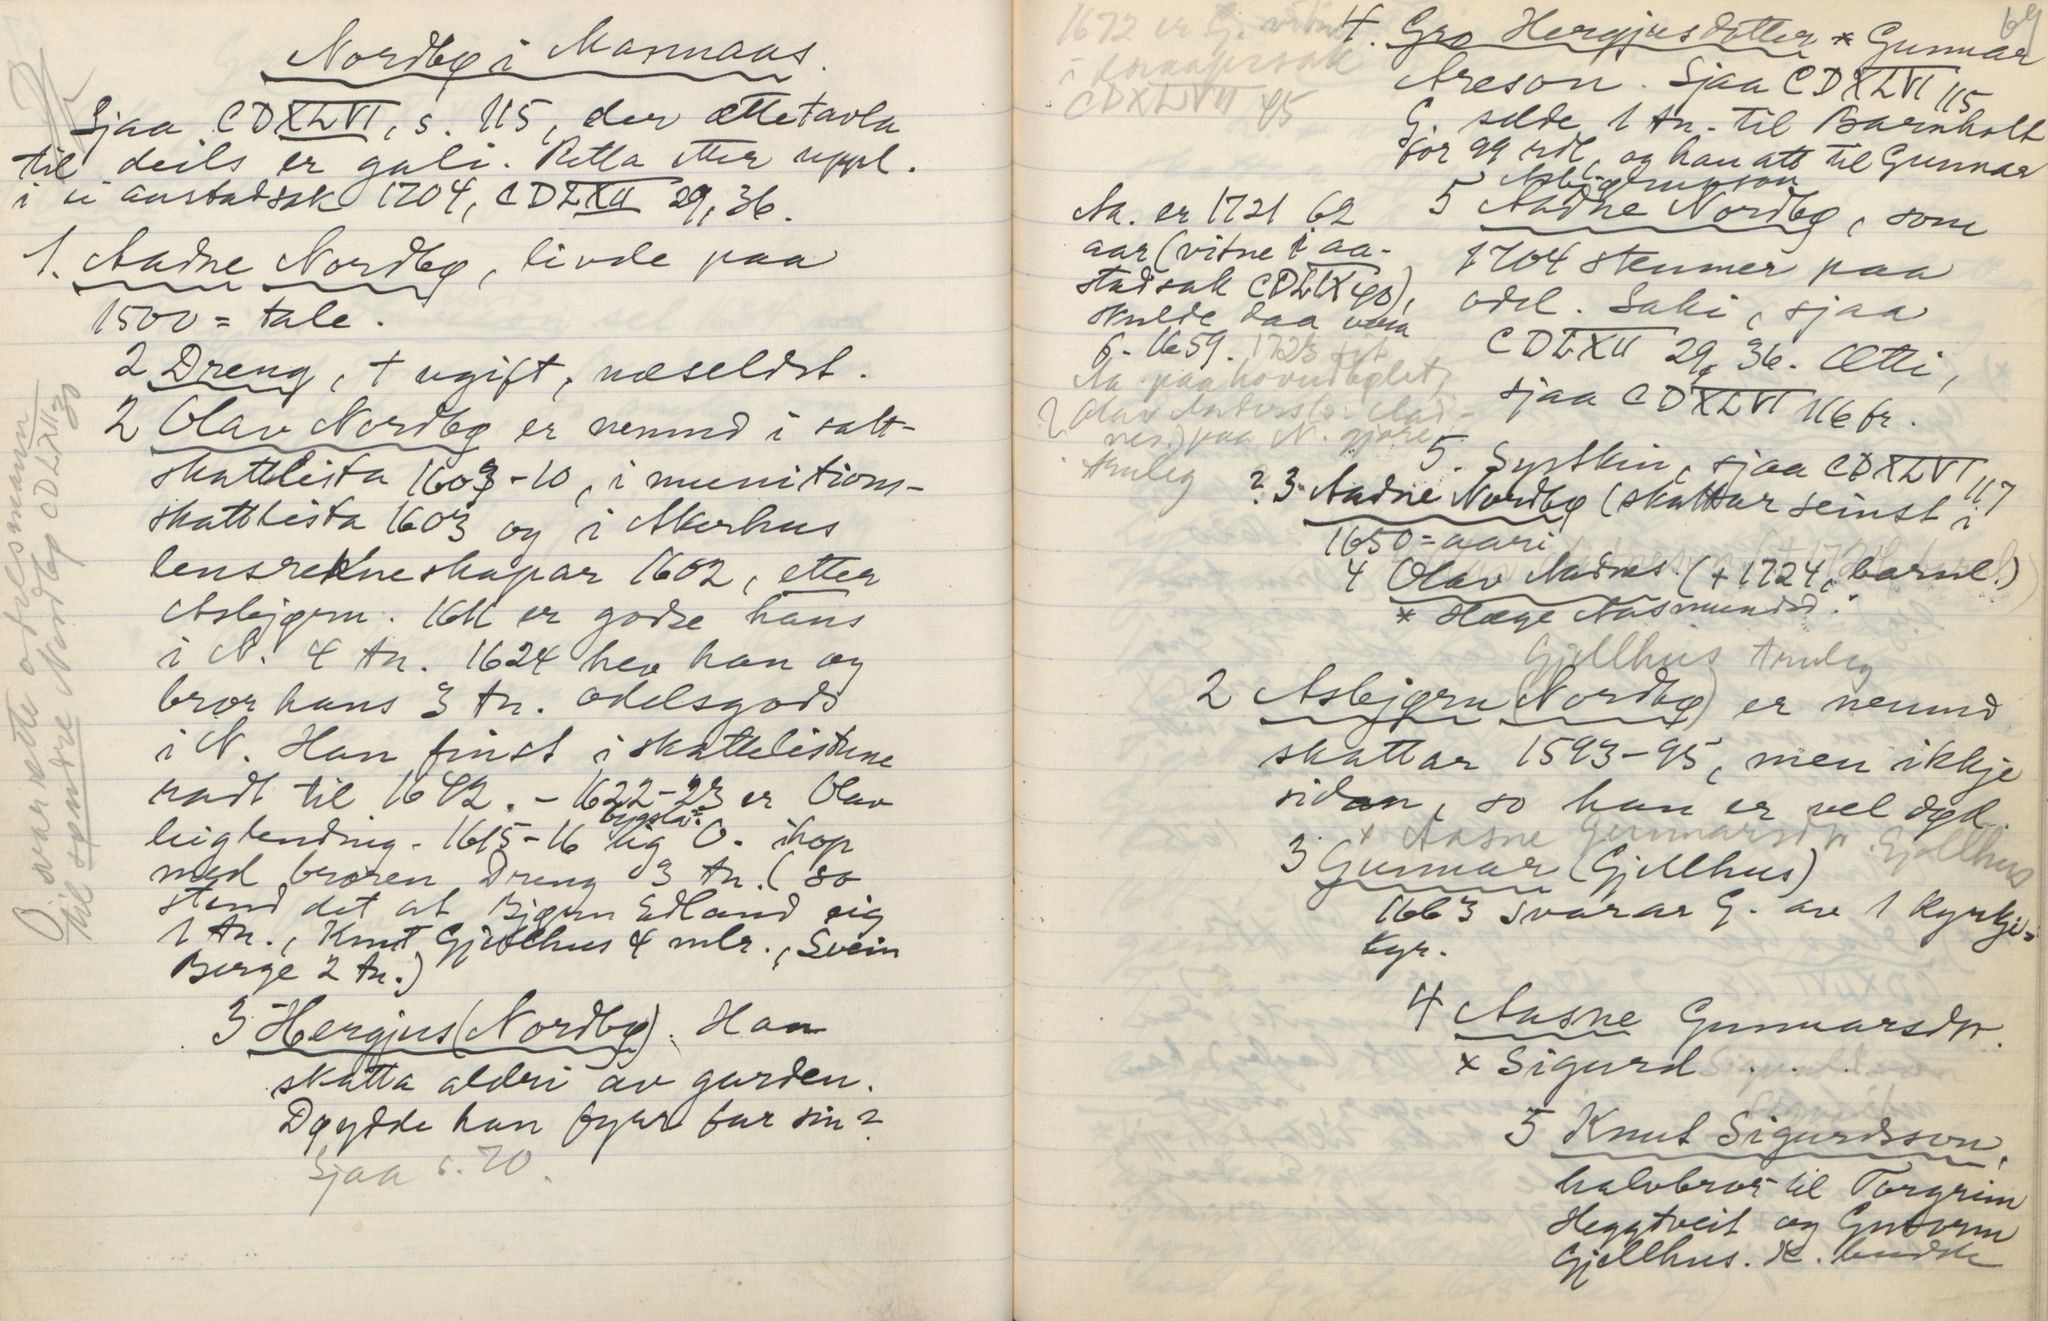 Nordbø i Marmaas.
Sjaa CDXLVI, s. 115, der ættetavla
til deils er gali. Retta etter uppl.
i ei aastadsak 1704, CDLXII 29, 36.
1. Aadne Nordbø, livde paa
1500=tale.
2 Dreng, † ugift, næseldst.
2 Olav Nordbø er nemnd i salt-
skattlista 1609-10, i munitions-
skattlista 1603 og i Akerhus
lensrekneskapar 1602, etter
Asbjørn. 1611 er godse hans
i N. 4 tn. 1624 hev han og
bror hans 3 tn. odelsgods
i N. Han finst i skattelistune
radt til 1642. - 1622-23 er Olav
leiglending. 1615-16 bygsla O. ihop
med broren Dreng 3 tn. (so
stend det at Bjørn Edland eig
1 tn., Knut Gjellhus 4 mlr., Svein
Berge 2 tn.)
3 Hergjus (Nordbø). Han
skatta aldri av garden.
Døydde han fyrr far sin?
Sjaa s. 70.
O. svar rette odelsmann
til søndre Nordbø CDLXII 30
69
1672 er G. vitne
i
CDXLVII 45
4. Gro Hergjusdotter * Gunnar
Areson. Sjaa CDXLVI 115
G. selde 1 tn. til Barnholt
for 99 rdl, og han att til Gunnar
Asbjørnson
5 Aadne Nordbø, som
1704 stemner paa
odel. Saki, sjaa
CDLXII 29, 36. Ætti,
sjaa CDXLVI 116 fr.
Aa. er 1721 62
aar (vitne i aa-
stadsak CDLIX 40),
skulde daa vera
f. 1659. 1723
Aa paa hovudbølet,
? Olav Anders (o: Aad-
nes.) paa N. gjore
truleg
5. Syskin, sjaa CDXLVI 117
? 3 Aadne Nordbø (skattar seinst i
1650=aari
4 Olav Aadnes. (+ 1724, barnl.)
* Hæge Aasmundsd.
Gjellhus truleg
2 Asbjørn (Nordbø) er nemnd
skattar 1593-95, men ikkje
sidan, so han er vel død.
x Aasne Gunnarsdtr. Gjellhus
3 Gunnar (Gjellhus)
1663 svarar G. av 1 kyrkje-
kyr.
4 Aasne Gunnarsdtr.
x Sigurd . . .
5 Knut Sigurdsson,
halvbror til Torgrim
Heggtveit og Guttorm
Gjellhus. K. budde